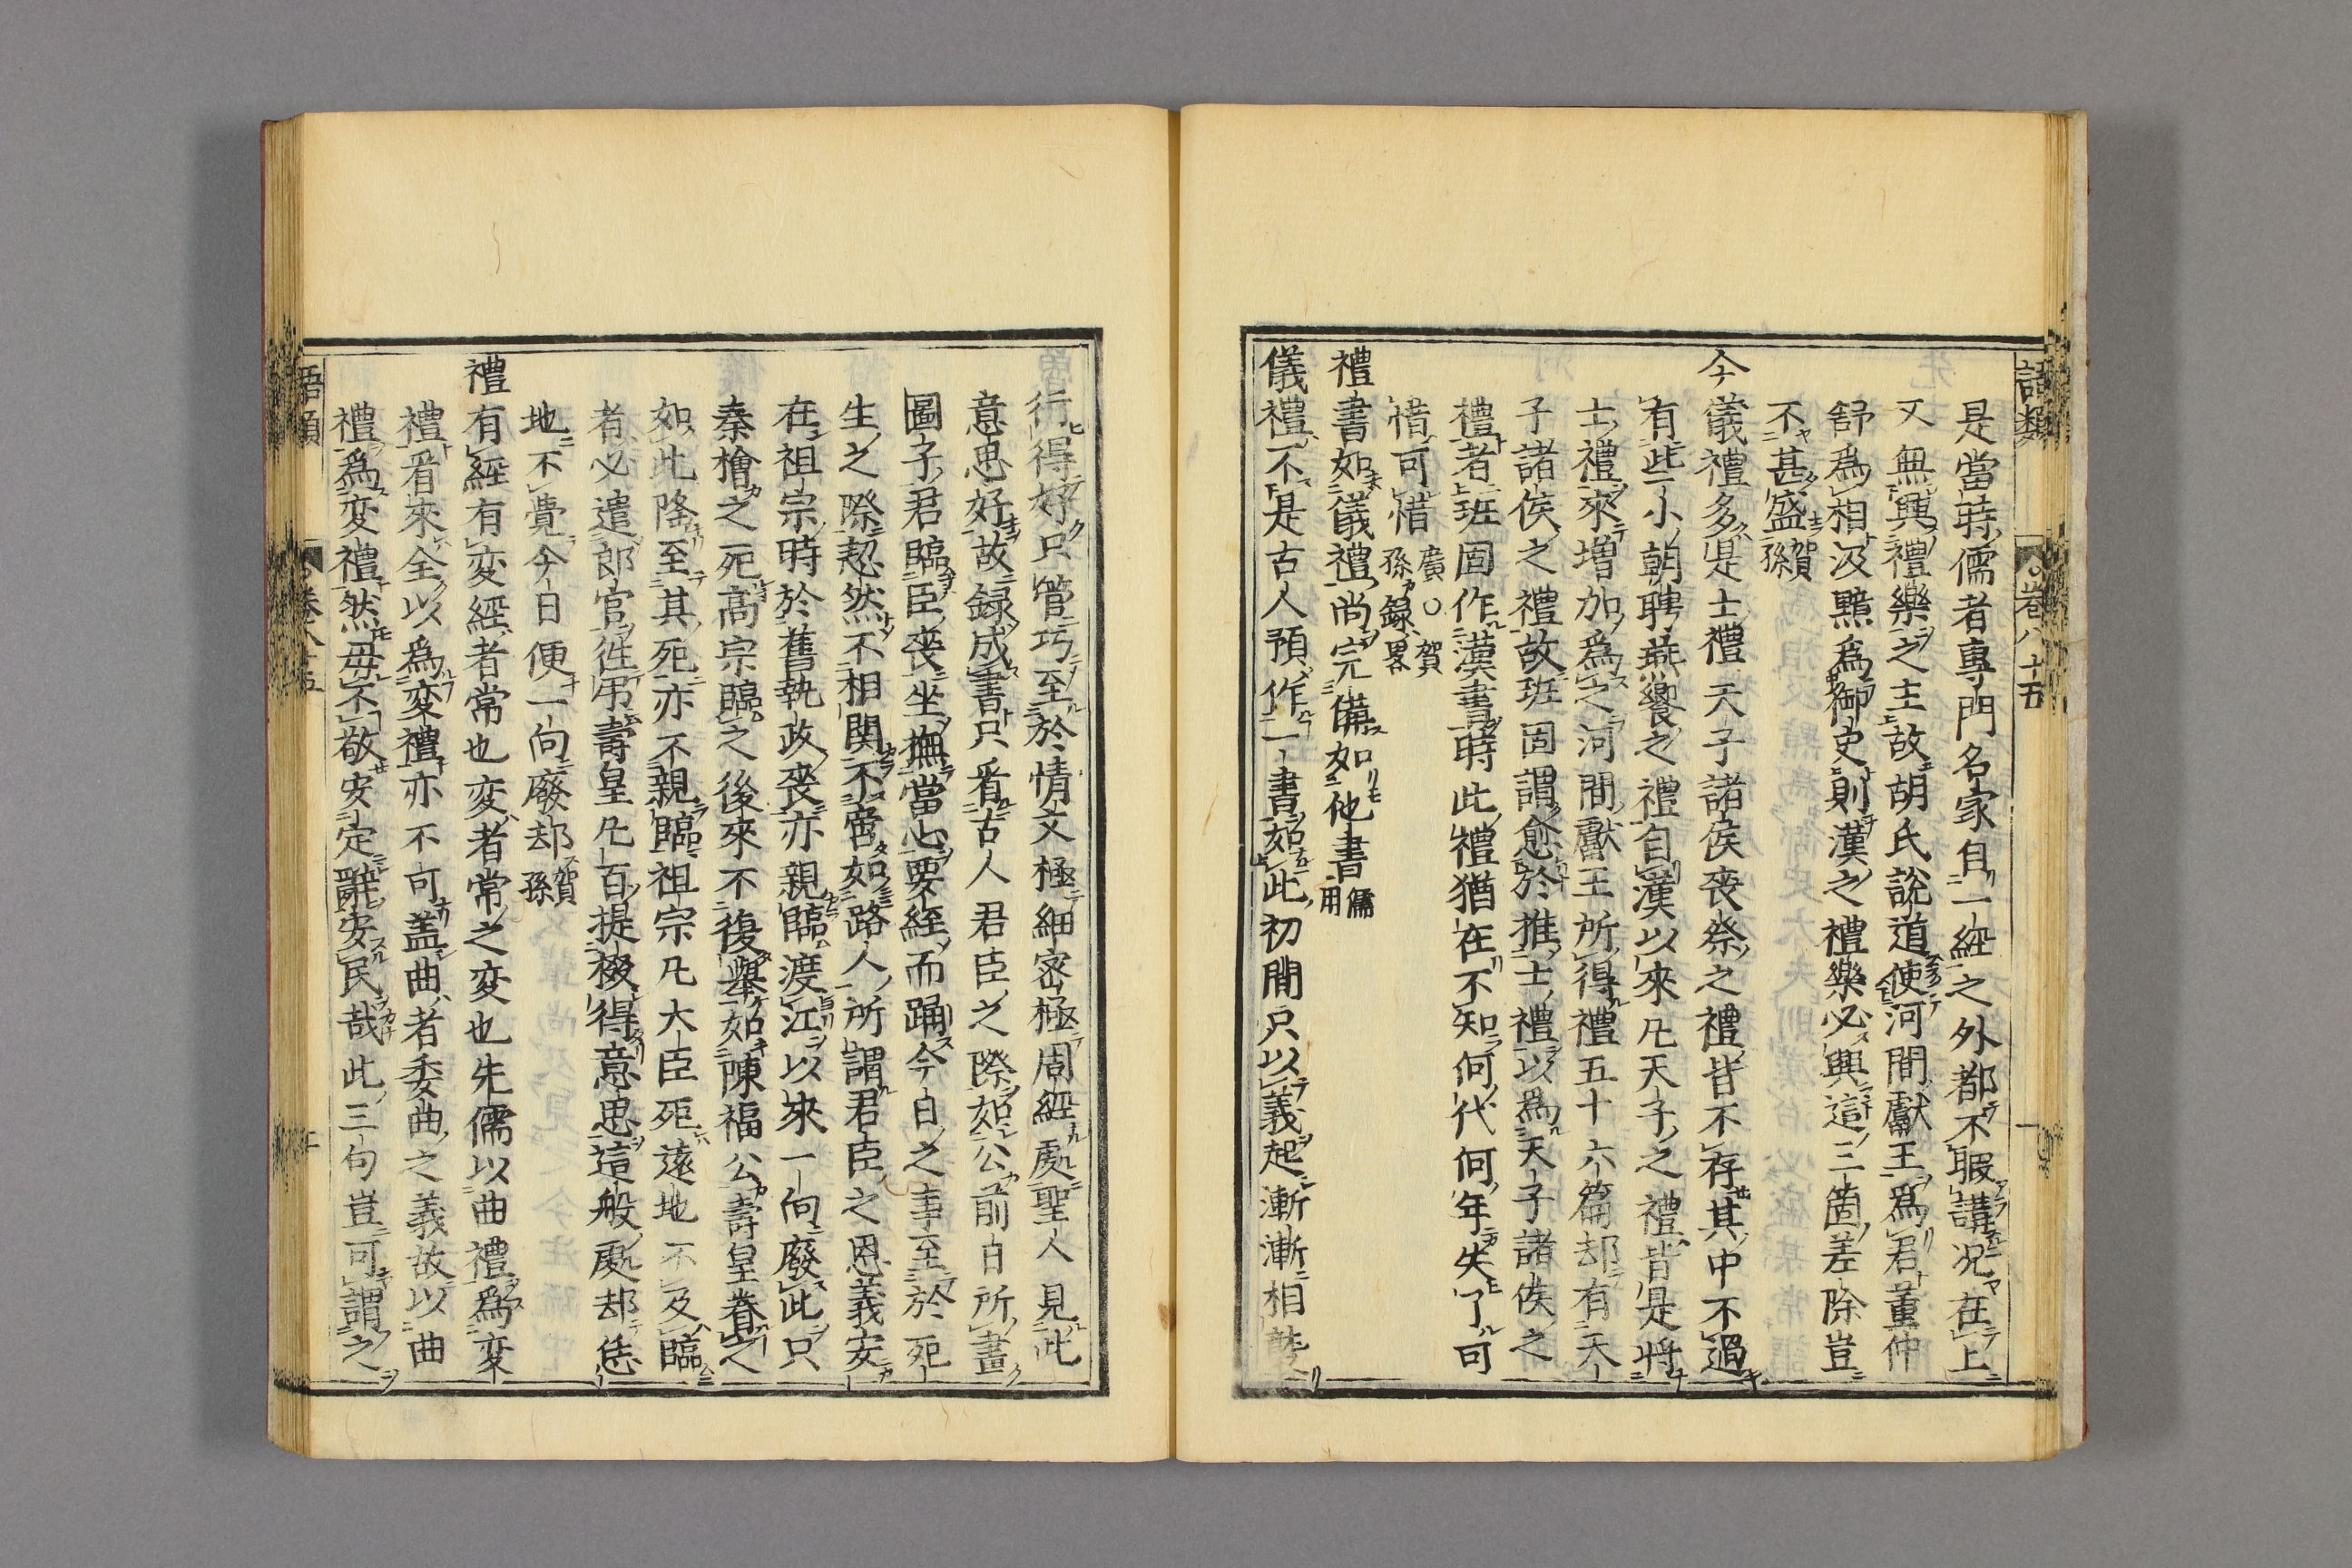 語類 卷八十五
是當時儒者專門名家自一經之外都不暇講况在上
又無興禮樂之主故胡氏說道使河間獻王爲君董仲
舒爲相汲黯爲御史則漢之禮樂必興這三箇差除豈
不甚盛賀孫
今儀禮多是士禮天子諸侯喪祭之禮皆不存其中不過
有些小朝聘燕饗之禮自漢以來凡天子之禮皆是將
士禮來增加爲之河間獻王所得禮五十六篇却有天
子諸侯之禮故班固謂愈於推士禮以爲天子諸侯之
禮者班固作漢書時此禮猶在不知何代何年失了可
惜可惜廣○賀孫録畧
禮書如儀禮尚完備如他書儒用
儀禮不是古人預作一書如此初間只以義起漸漸相襲
行得好只管巧至於情文極細密極周經處聖人見此
意思好故録成書只看古人君臣之際如公前日所畫
圖子君臨臣喪坐撫當心要絰而踊今日之事至於死
生之際恝然不相関不啻如路人所謂君臣之恩義安
在祖宗時於舊執政喪亦親臨渡江以來一向廢此只
秦檜之死高宗臨之後來不復舉如陳福公壽皇眷之
如此隆至其死亦不親臨祖宗凡大臣死遠地不及臨
者必遣郎官徃弔壽皇凡百提掇得意思這般處却恁
地不覺今日便一向廢却賀孫
禮有經有変經者常也変者常之変也先儒以曲禮爲変
禮看來全以爲変禮亦不可盖曲者委曲之義故以曲
禮爲変禮然毋不敬安定辭安民哉此三句豈可謂之
語類 卷八十五